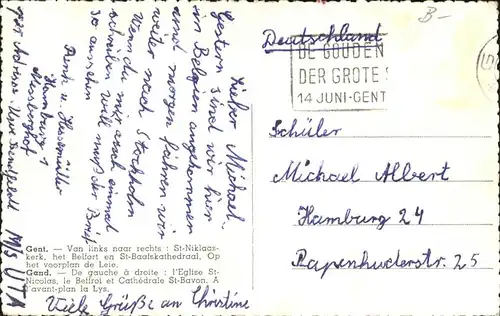 B-
Deutschland
DE GOUDEN
DER GROTE
14 JUNI-GENT
Schüler
Michael Albert
Hamburg 24
Papenhuderstr. 25
Lieber Michael.
Gestern sind wir hier
in Belgien angekommen
und morgen fahren wir
weiter nach Stockholm
Wenn du mir auch einmal
schreiben will muß der Brief
so aussehen
Hamburg 1
M/S UTA
Viele Grüße an Christine
Gent. — Van links naar rechts : St-Niklaas-
kerk, het Belfort en St-Baafskathedraal, Op
het voorplan de Leie.
Gand. — De gauche à droite : l'Eglise St-
Nicolas, le Beffroi et Cathédrale St-Bavon. A
l'avant-plan la Lys.